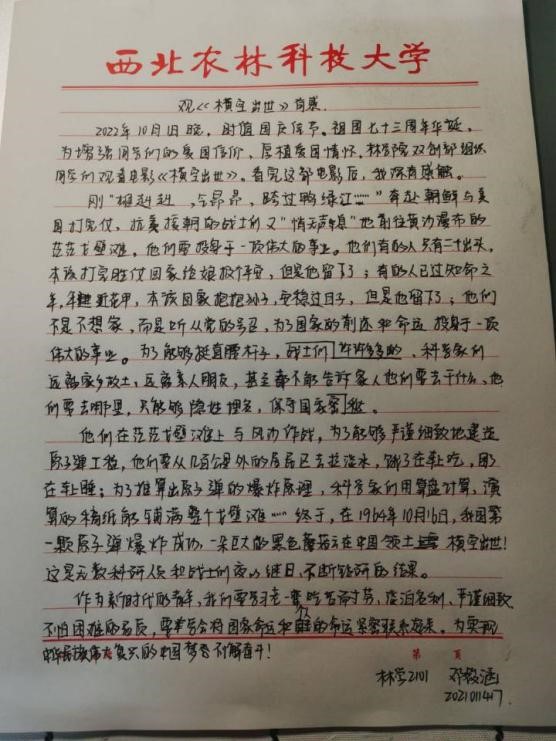 西北农林科技大学
观《横空出世》有感.
2022年10月1日晚,时值国庆佳节。祖国七十三周年华诞,
为增强同学们的爱国信念,厚植爱国情怀,林学院双创部组织
同学们观看电影《横空出世》。看完这部电影后,我深有感触。
刚“雄赳赳,气昂昂,跨过鸭绿江……”奔赴朝鲜与美
国打完仗,抗美援朝的战士们又“悄无声息”地前往黄沙漫布的
茫茫戈壁滩。他们要投身于一项伟大的事业。他们有的人只有二十出头,
本该打完胜仗回家给娘报个平安,但是他留下了;有的人已过知命之
年,年近花甲,本该回家抱抱孙子,安稳过日子,但是他留下了;他们
不是不想家,而是听从党的号召,为了国家的前途和命运 投身于一项
伟大的事业。为了能够挺直腰杆子,战士们 许许多多的、科学家们
远离家乡故土,远离亲人朋友,甚至都不能告诉家人他们要去干什么、他
们要去哪里,只能够隐姓埋名,保守国家密秘。
他们在茫茫戈壁滩上与风沙作战,为了能够严谨细致地建造
原子弹工程,他们要从几百公里外的居民区去拉淡水,饿了在车上吃,困了
在车上睡;为了推算出原子弹的爆炸原理,科学家们用算盘计算,演
算的稿纸能铺满整个戈壁滩……终于,在1964年10月16日,我国第
一颗原子弹爆炸成功,一朵巨大的黑色蘑菇云在中国领土上 横空出世!
这是无数科研人员和战士们夜以继日、不断钻研的结果。
作为新时代的青年,我们要学习老一辈吃苦耐劳、淡泊名利、严谨细致
不怕困难的品质,要学会将国家命运和的命运紧密联系起来。为实现
中华民族伟大复兴的中国梦而不懈奋斗!
第 页
林学2101 邓毅涵
2021011417.